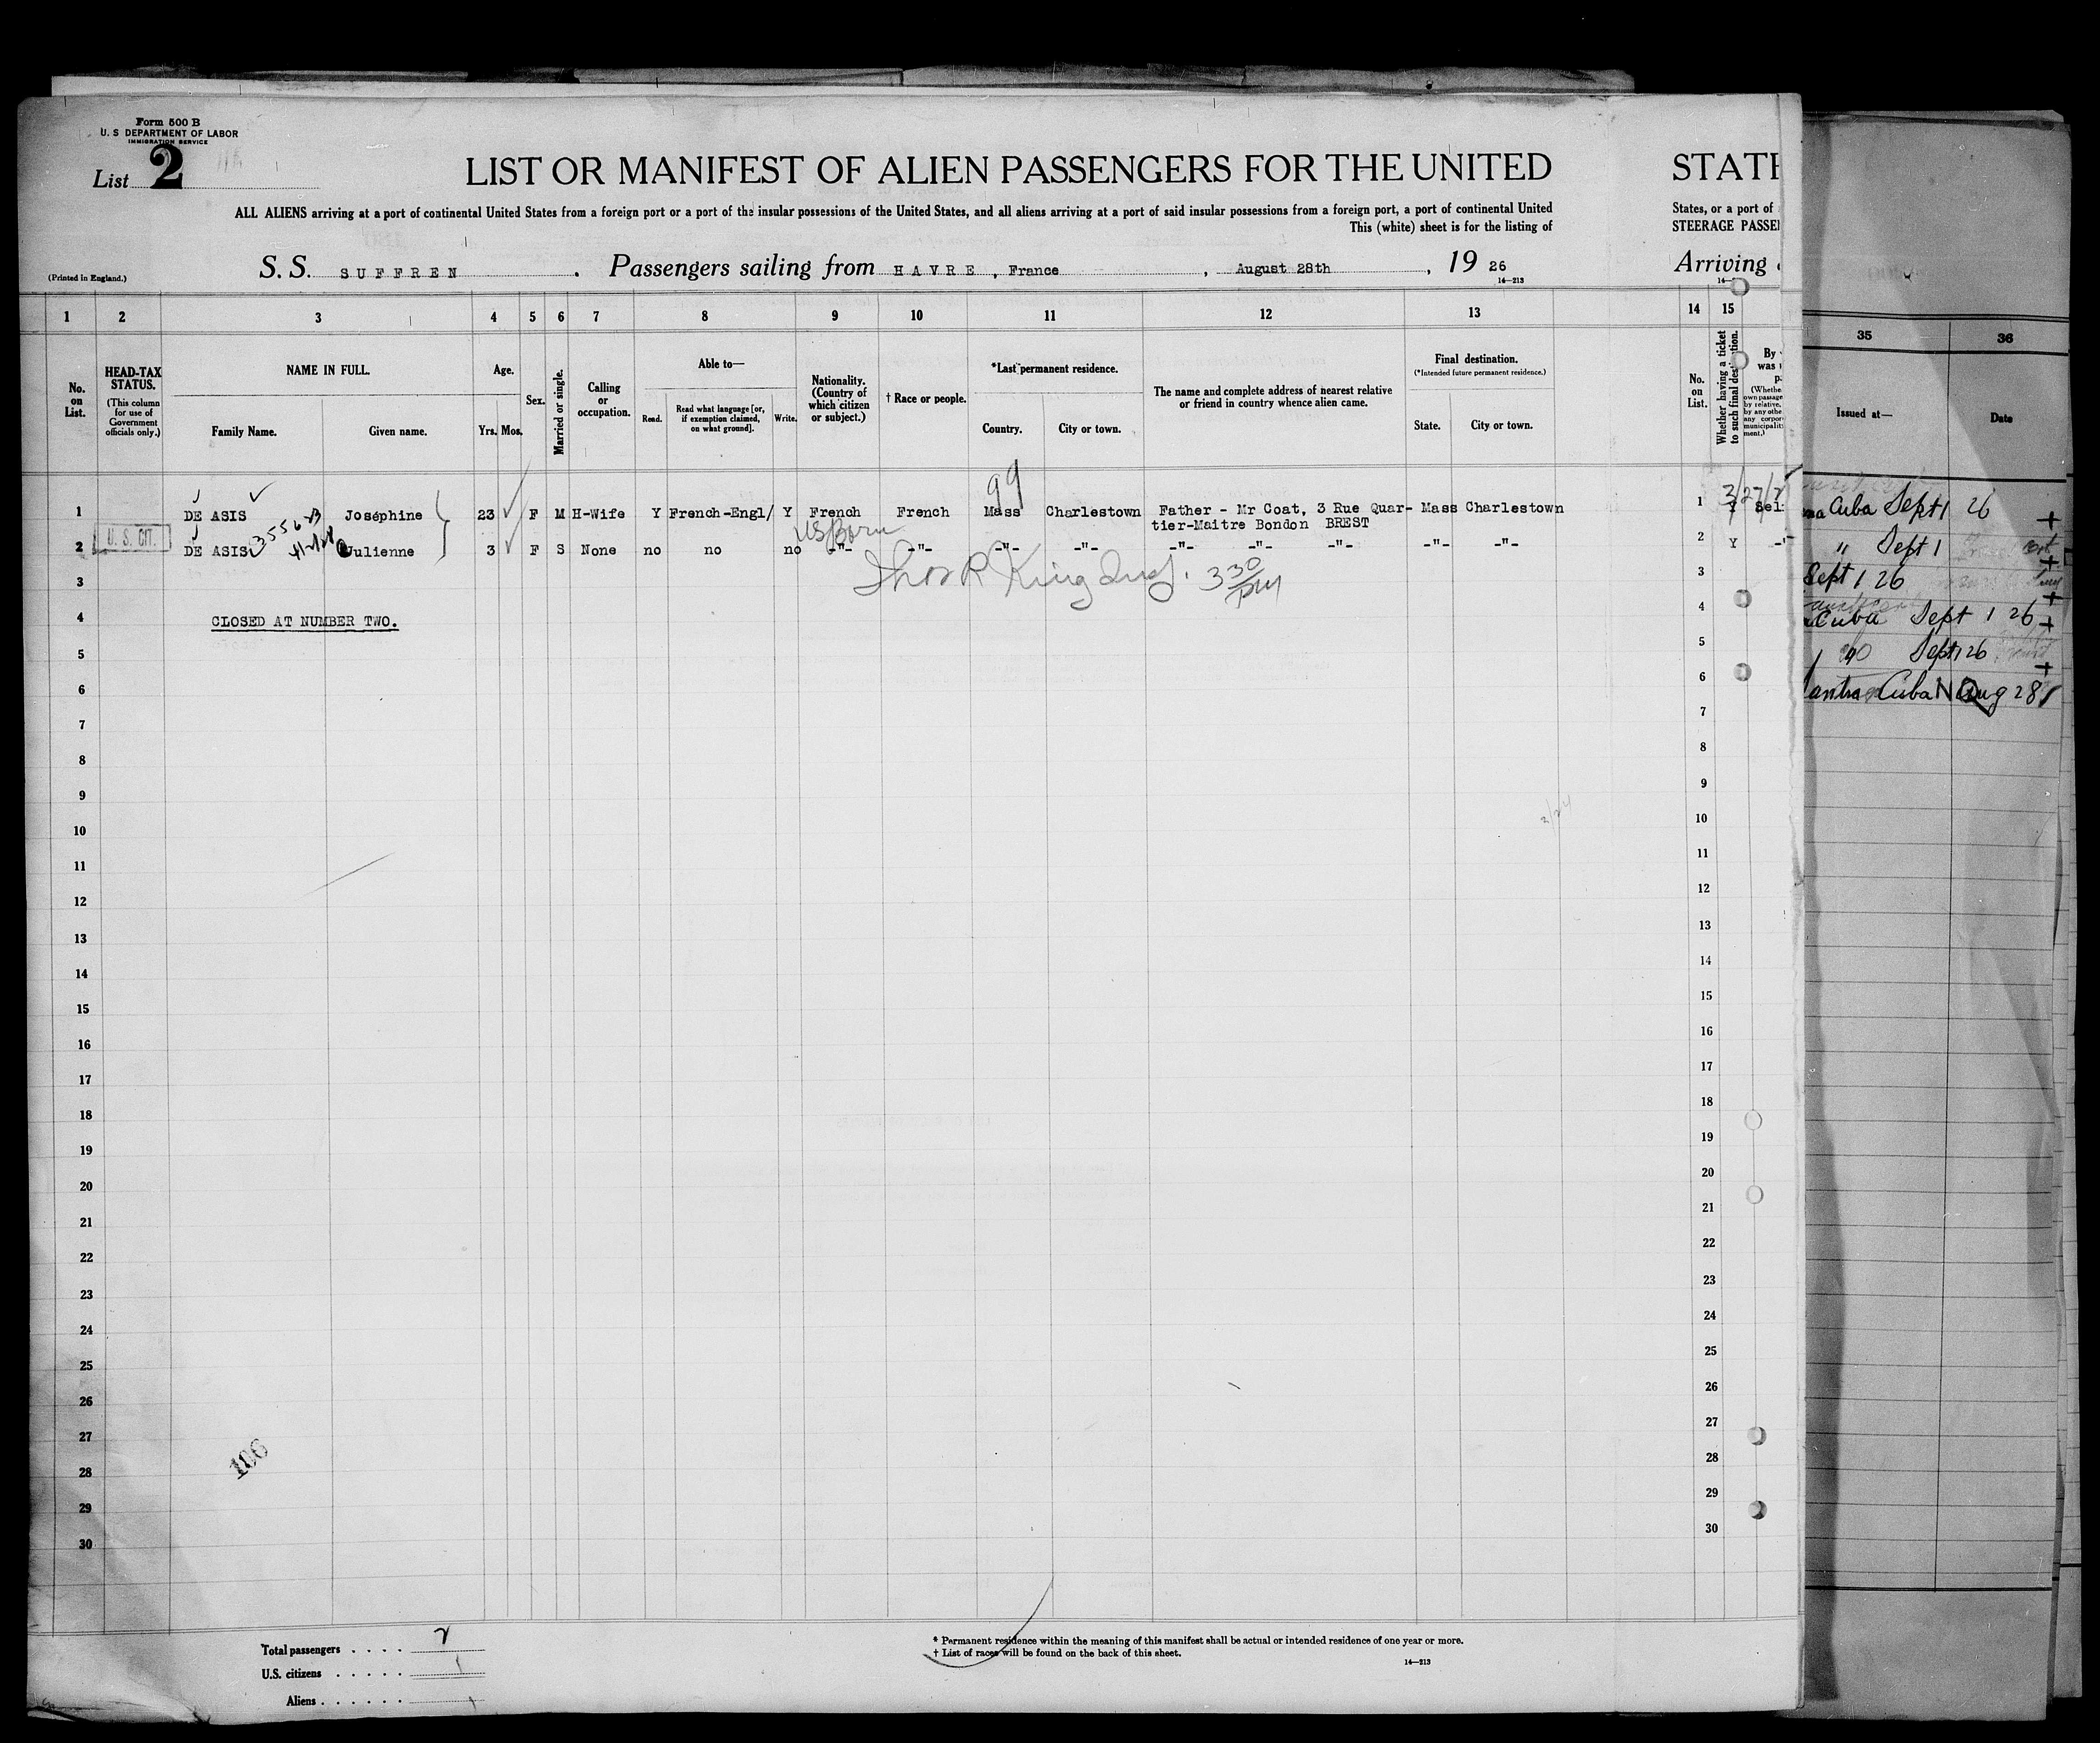 Form 500 B
U. S DEPARTMENT OF LABOR
IMMIGRATION SERVICE
List 2
LIST OR MANIFEST OF ALIEN PASSENGERS FOR THE UNITED
STATE
ALL ALIENS arriving at a port of continental United States from a foreign port or a port of the insular possessions of the United States, and all aliens arriving at a port of said insular possessions from a foreign port, a port of continental United
States, or a port of
This (white) sheet is for the listing of
STEERAGE PASSE
(Printed in England.)
S. S. SUFFREN . Passengers sailing from HAVRE , France , August 28th , 19 26
Arriving
14—213
1 2 3 4 5 6 7 8 9 10 11 12 13 14 15 35 36
No. on List.
HEAD-TAX STATUS.
(This column for use of Government officials only.)
NAME IN FULL.
Family Name. Given name.
Age.
Yrs. Mos.
Sex.
Married or single.
Calling or occupation.
Able to—
Read. Read what language [or, if exemption claimed, on what ground]. Write.
Nationality. (Country of which citizen or subject.)
† Race or people.
*Last permanent residence.
Country. City or town.
The name and complete address of nearest relative or friend in country whence alien came.
Final destination.
(*Intended future permanent residence.)
State. City or town.
No. on List.
Whether having a ticket to such final destination.
By
was
(Whether
own passage
by relative,
by any othe
any corpor
municipali
ment.)
Issued at—
Date
99
1 DE ASIS Joséphine 23 F M H-Wife Y French-Engl/ Y French French Mass Charlestown Father - Mr Coat, 3 Rue Quar- Mass Charlestown 1 Y Sel
tier-Maitre Bondon BREST
3/27/
3556-B
US Born
U. S. CIT.
2 DE ASIS Julienne 3 F S None no no no -"- -"- -"- -"- -"- -"- -"- -"- -"- 2 Y -"-
Thos R King Insp. 3 30 pm
3 3
4 CLOSED AT NUMBER TWO. 4
5 5
6 6
7 7
8 8
9 9
10 10
11 11
12 12
13 13
14 14
15 15
16 16
17 17
18 18
19 19
20 20
21 21
22 22
23 23
24 24
25 25
26 26
27 27
28 28
29 29
30 30
Cuba Sept 1 26
" Sept 1
Sept 1 26
Cuba Sept 1 26
" Sept 1 26
Cuba Aug 28
106
Total passengers . . . . 2
U.S. citizens . . . . . 1
Aliens . . . . . . 1
* Permanent residence within the meaning of this manifest shall be actual or intended residence of one year or more.
† List of races will be found on the back of this sheet.
14—213